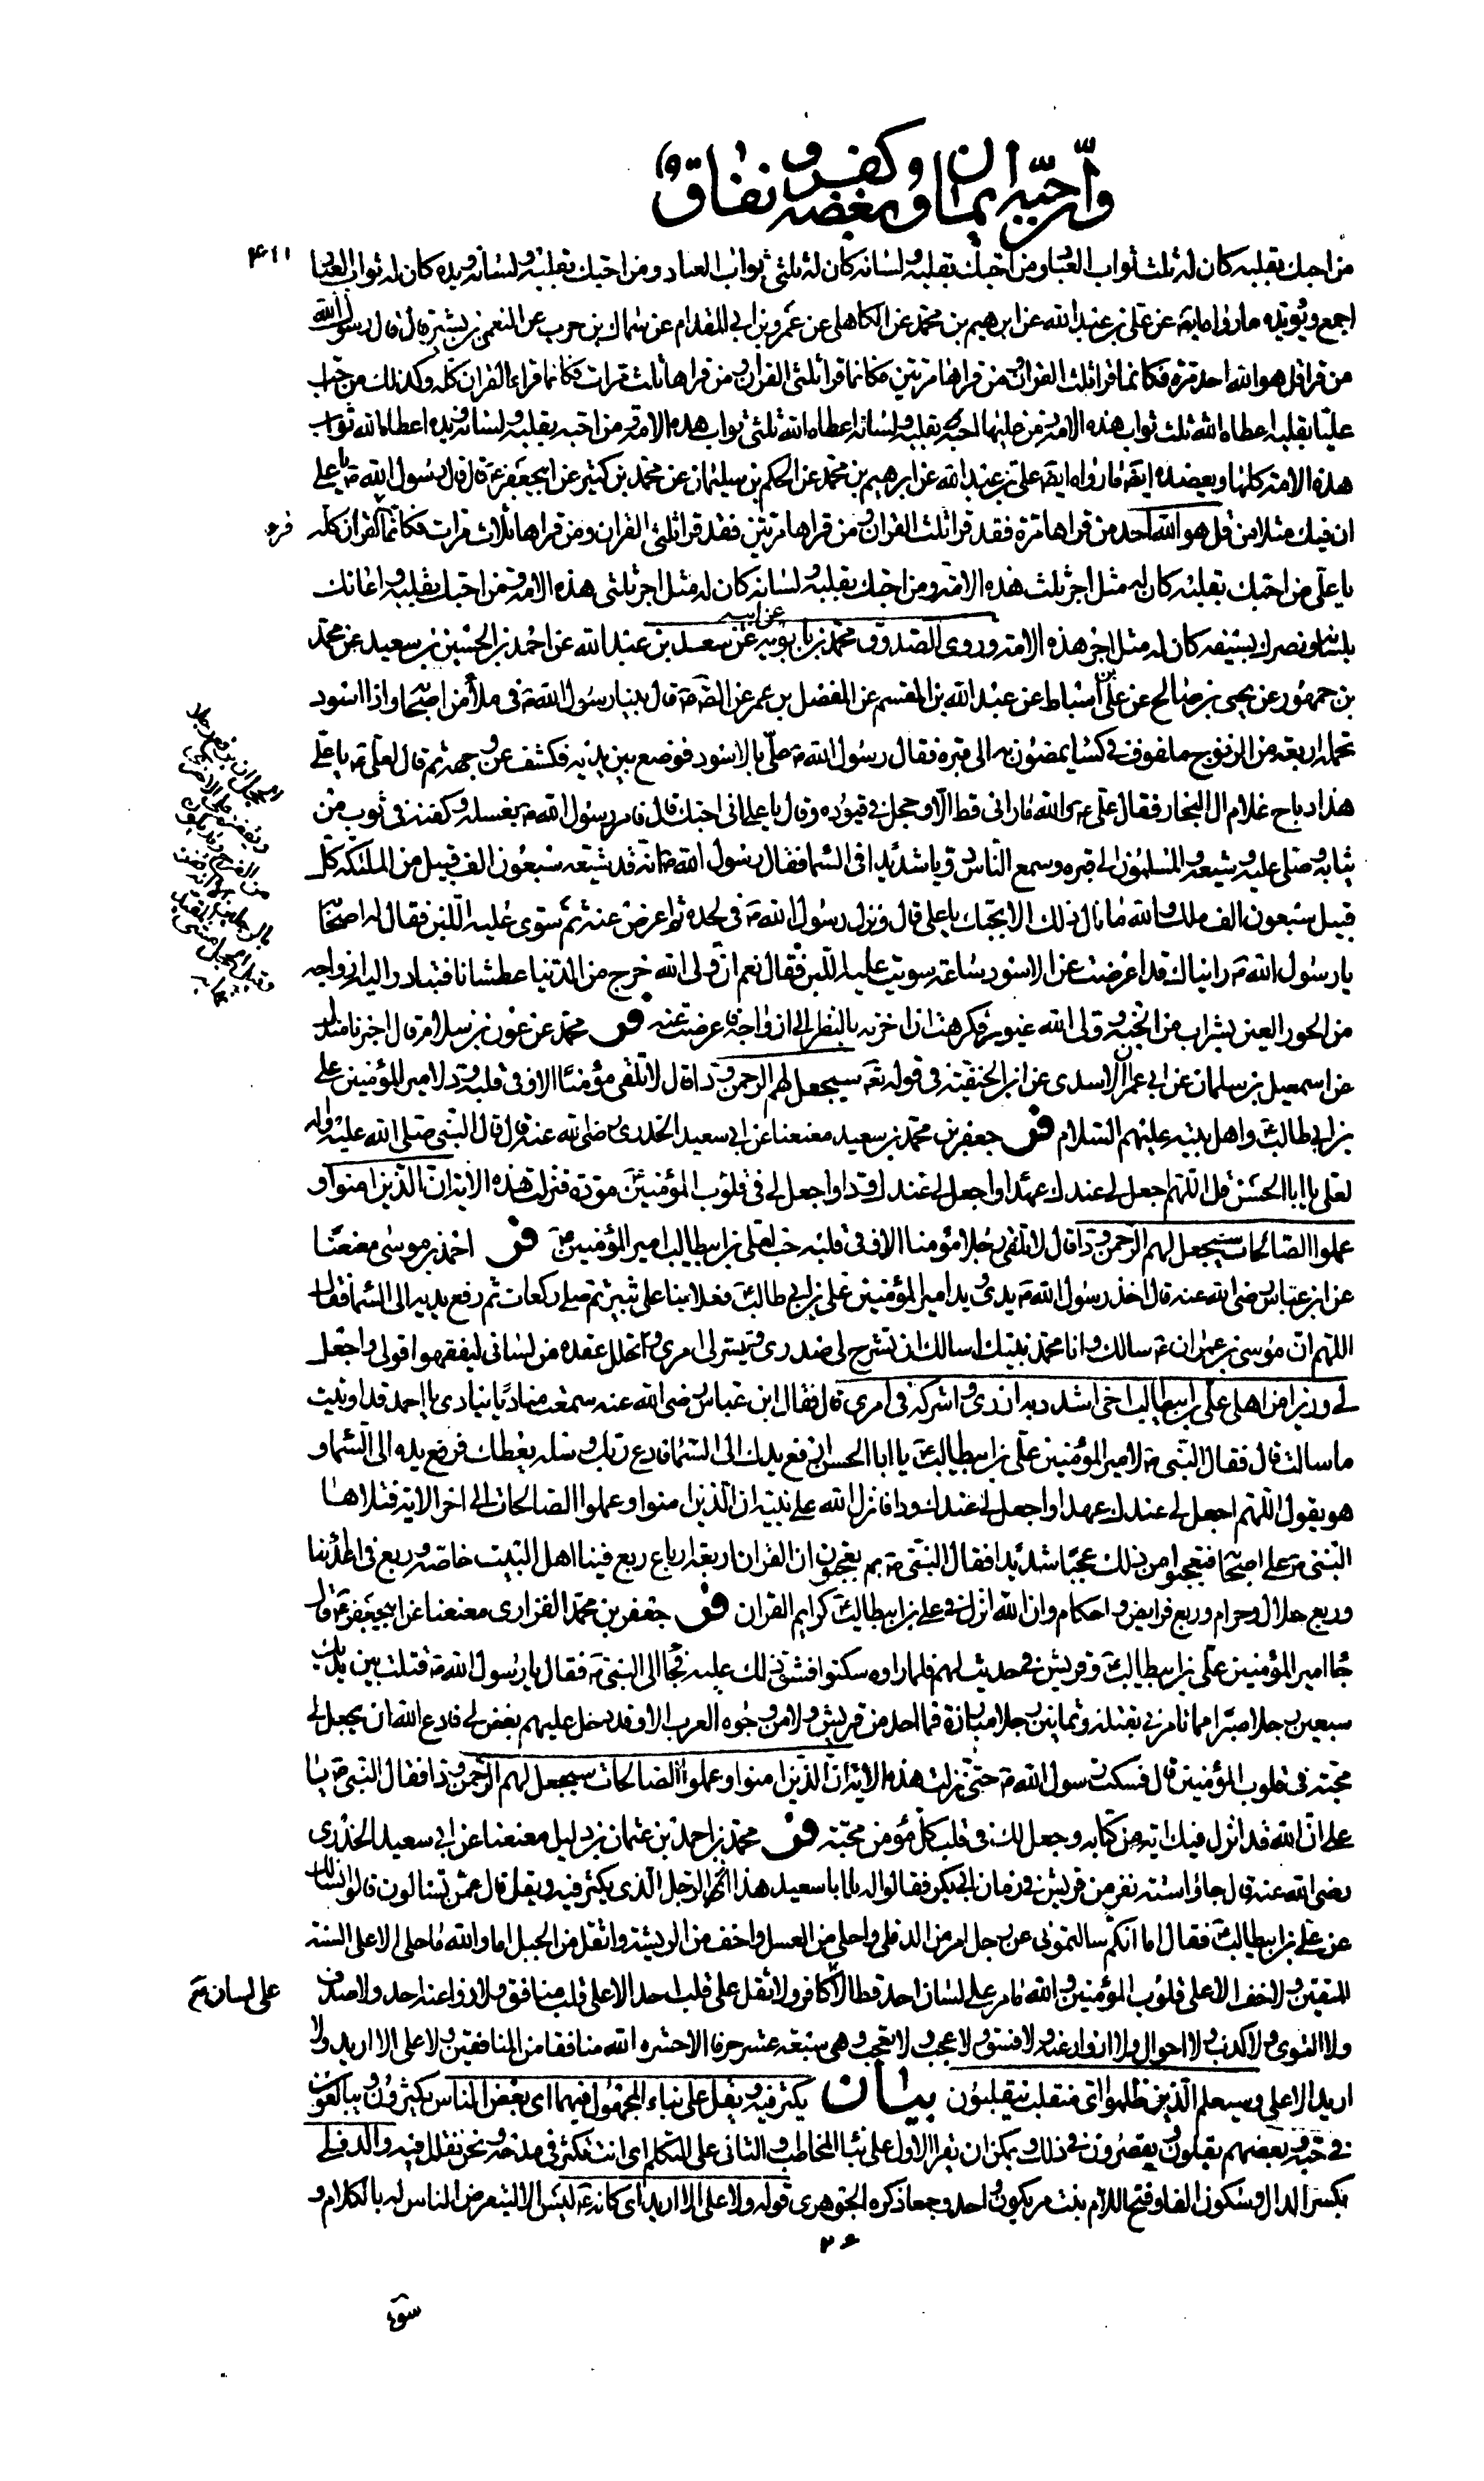 وان حبه ايمان وكفر وبغضه نفاق
٤١١
من احبك بقلبه كان له ثلث ثواب العباد ومن احبك بقلبه ولسانه كان له ثلثى ثواب العباد ومن احبك بقلبه ولسانه ويده كان له ثواب العباد
اجمع ويؤيده ما رواه ايضا عن على بن عبد الله عن ابرهيم بن محمد عن الكاهلى عن عمرو بن ابى المقدام عن سماك بن حرب عن النعمن بن بشير قال قال رسول الله
من قرا قل هو الله احد مرة فكانما قرا ثلث القران ومن قراها مرتين فكانما قرا ثلثى القران ومن قراها ثلث مرات فكانما قراء القران كله وكذلك من احب
عليا بقلبه اعطاه الله ثلث ثواب هذه الامة ومن احبه بقلبه ولسانه اعطاه الله ثلثى ثواب هذه الامة ومن احبه بقلبه ولسانه ويده اعطاه الله ثواب
هذه الامة كلها ويعضده ايضا ما رواه ايضا على بن عبد الله عن ابرهيم بن محمد عن الحكم بن سليمان عن محمد بن كثير عن ابيجعفر ع قال قال رسول الله ص يا على
ان فيك مثلا من قل هو الله احد من قراها مرة فقد قرا ثلث القران ومن قراها مرتين فقد قرا ثلثى القران ومن قراها ثلاث مرات فكانما القران كله
قرء
يا على من احبك بقلبه كان له مثل اجر ثلث هذه الامة ومن احبك بقلبه ولسانه كان له مثل اجر ثلثى هذه الامة ومن احبك بقلبه واعانك
بلسانه ونصرك بسيفه كان له مثل اجر هذه الامة وروى الصدوق محمد بن بابويه عن ابيه عن سعد بن عبد الله عن احمد بن الحسين بن سعيد عن محمد
بن جمهور عن يحيى بن صالح عن على بن اسباط عن عبد الله بن القسم عن المفضل بن عمر عن الص ع قال بينا رسول الله ص فى ملأ من اصحابه واذا اسود
تحمله اربعة من الزنوج ملفوف فى كساء يمضون به الى قبره فقال رسول الله ص على بالاسود فوضع بين يديه فكشف عن وجهه ثم قال لعلى ع يا على
هذا رباح غلام ال النجار فقال على ع والله ما رانى قط الا وحجل فى قيوده وقال يا على انى احبك قال فامر رسول الله ص بغسله وكفنه فى ثوب من
ثيابه وصلى عليه وشيعه والمسلمون الى قبره وسمع الناس دويا شديدا فى السماء فقال رسول الله ص انه قد شيعه سبعون الف قبيل من الملئكة كل
قبيل سبعون الف ملك والله ما نال ذلك الا بحبك يا على قال ونزل رسول الله ص فى لحده ثم اعرض عنه ثم سوى عليه اللبن فقال له اصحابه
يا رسول الله ص رايناك قد اعرضت عن الاسود ساعة ثم سويت عليه اللبن فقال نعم ان ولى الله خرج من الدنيا عطشانا فتبادر اليه ازواجه
من الحور العين بشراب من الجنة وولى الله غيور فكرهت ان احزنه بالنظر الى ازواجه فاعرضت عنه فر محمد عن عون بن سلام قال اخبرنا مندل
عن اسمعيل بن سلمان عن ابى عمران الاسدى عن ابن الحنفية فى قوله تع سيجعل لهم الرحمن ودا قال لا تلقى مؤمنا الا وفى قلبه ود لامير المؤمنين على
بن ابى طالب واهل بيته عليهم السلام فر جعفر بن محمد بن سعيد معنعنا عن ابى سعيد الخدرى رضى الله عنه قال قال النبى صلى الله عليه واله
لعلى يا ابا الحسن قل اللهم اجعل لى عندك عهدا واجعل لى عندك ودا واجعل لى فى قلوب المؤمنين مودة فنزلت هذه الاية ان الذين امنوا و
عملوا الصالحات سيجعل لهم الرحمن ودا قال لا تلقى رجلا مؤمنا الا وفى قلبه حب لعلى بن ابيطالب امير المؤمنين ع فر احمد بن موسى معنعنا
عن ابن عباس رضى الله عنه قال اخذ رسول الله ص يدى ويد امير المؤمنين على بن ابى طالب ع فعلا بنا على ثبير ثم صلى ركعات ثم رفع يديه الى السماء فقال
اللهم ان موسى بن عمران ع سالك وانا محمد نبيك اسالك ان تشرح لى صدرى وتيسر لى امرى وتحلل عقدة من لسانى ليفقهوا قولى واجعل
لى وزيرا من اهلى على بن ابيطالب اخى اشدد به ازرى واشركه فى امرى قال فقال ابن عباس رضى الله عنه سمعت مناديا ينادى يا احمد قد اوتيت
ما سالت قال فقال النبى ص لامير المؤمنين على بن ابيطالب ع يا ابا الحسن ارفع يدك الى السماء فادع ربك وسله يعطك فرفع يده الى السماء و
هو يقول اللهم اجعل لى عندك عهدا واجعل لى عندك ودا فانزل الله على نبيه ان الذين امنوا وعملوا الصالحات الى اخر الاية فتلاها
النبى ص على اصحابه فتعجبوا من ذلك عجبا شديدا فقال النبى ص بم تعجبون ان القران اربعة ارباع ربع فينا اهل البيت خاصة وربع فى اعدائنا
وربع حلال وحرام وربع فرايض واحكام وان الله انزل فى على بن ابيطالب ع كرايم القران فر جعفر بن محمد الفزارى معنعنا عن ابيجعفر ع قال
جاء امير المؤمنين على بن ابيطالب ع وقريش فى حديث لهم فلما راوه سكتوا فشق ذلك عليه فجاء الى النبى ص فقال يا رسول الله ص قتلت بين يديك
سبعين رجلا صبرا مما تامرنى بقتله وثمانين رجلا مبارزة فما احد من قريش ولا من وجوه العرب الا وقد دخل عليهم بغض لى فادع الله ان يجعل لى
محبة فى قلوب المؤمنين قال فسكت رسول الله ص حتى نزلت هذه الاية ان الذين امنوا وعملوا الصالحات سيجعل لهم الرحمن ودا فقال النبى ص يا
على ان الله قد انزل فيك اية من كتابه وجعل لك فى قلب كل مؤمن محبة فر محمد بن احمد بن عثمان بن دليل معنعنا عن ابى سعيد الخدرى
رضى الله عنه قال جاؤا ستة نفر من قريش فى زمان ابى بكر فقالوا له يا ابا سعيد هذا الرجل الذى يكثر فيه ويقل قال عمن تسالون قالوا نسالك
عن على بن ابيطالب ع فقال اما انكم سالتمونى عن رجل امر من الدفلى واحلى من العسل واخف من الريشة واثقل من الجبل اما والله ما حلى الا على السنة
المتقين ولا خف الا على قلوب المؤمنين والله ما مر على لسان احد قط الا كافر ولا ثقل على قلب احد الا على قلب منافق ولا زوا عنه احد ولا صدف
على لسان
ولا التوى ولا كذب ولا احوال ولا ازوار عنه ولا فسق ولا عجب ولا تعجب وهى سبعة عشر حرفا الا حشره الله منافقا من المنافقين ولا على الا اريد ولا
اريد الا على وسيعلم الذين ظلموا اى منقلب ينقلبون بيان يكثر فيه ويقل على بناء المجهول فيهما اى بعض الناس يكثرون ويبالغون
فى حبه وبعضهم يقلون ويقصرون فى ذلك ويمكن ان يقرا الاول على بناء المخاطب والثانى على المتكلم اى انت تكثر فى مدحه ونحن نقلل فيه والدفلى
بكسر الدال وسكون الفاء وفتح اللام نبت مر يكون واحدا وجمعا ذكره الجوهرى قوله ولا على الا اريد اى كانه ع ليس الا ليتعرض الناس له بالكلام و